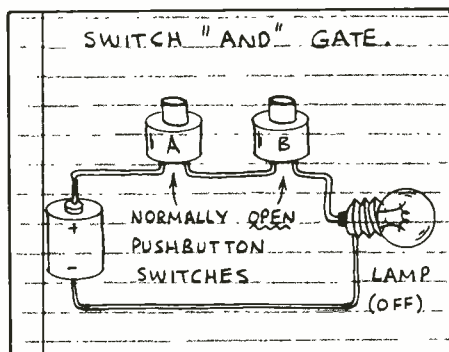 SWITCH "AND" GATE.
A
B
+
-
NORMALLY OPEN
PUSHBUTTON
SWITCHES
LAMP
(OFF)